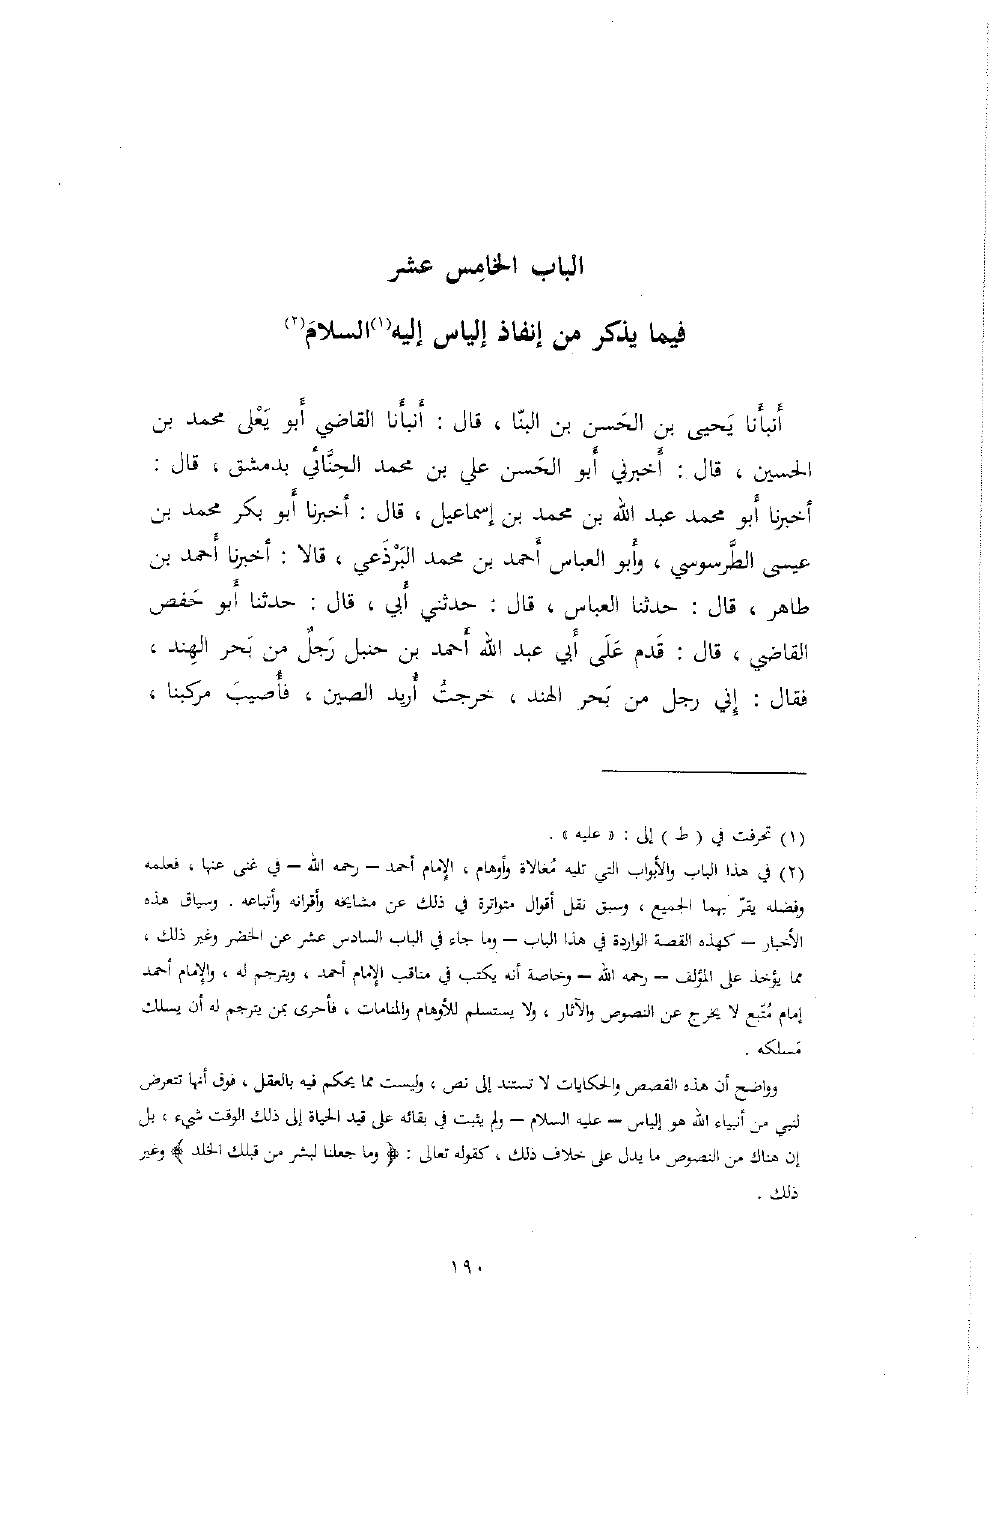 الباب الخامِس عشر
فيما يذكر من إنفاذ إلياس إليه(١)السلامَ(٢)
أَنبأَنا يَحيى بن الحَسن بن البنّا ، قال : أَنبأَنا القاضي أَبو يَعْلى محمد بن
الحسين ، قال : أَخبرني أَبو الحَسن علي بن محمد الحِنَّائي بدمشق ، قال :
أخبرنا أَبو محمد عبد الله بن محمد بن إسماعيل ، قال : أخبرنا أَبو بكر محمد بن
عيسى الطَّرسوسي ، وأَبو العباس أَحمد بن محمد البَرْذَعي ، قالا : أخبرنا أَحمد بن
طاهر ، قال : حدثنا العباس ، قال : حدثني أَبي ، قال : حدثنا أَبو حَفص
القاضي ، قال : قَدم عَلَى أَبي عبد الله أَحمد بن حنبل رَجلٌ من بَحر الهِند ،
فقال : إِني رجل من بَحر الهند ، خرجتُ أُريد الصين ، فأُصيبَ مركبنا ،
(١) تحرفت في ( ط ) إلى : « عليه » .
(٢) في هذا الباب والأبواب التي تليه مُغالاة وأوهام ، الإمام أحمد – رحمه الله – في غنى عنها ، فعلمه
وفضله يقرّ بهما الجميع ، وسبق نقل أقوال متواترة في ذلك عن مشايخه وأقرانه وأتباعه . وسياق هذه
الأخبار – كهذه القصة الواردة في هذا الباب – وما جاء في الباب السادس عشر عن الخضر وغير ذلك ،
مما يؤخذ على المؤلف – رحمه الله – وخاصة أنه يكتب في مناقب الإمام أحمد ، ويترجم له ، والإمام أحمد
إمام مُتّبع لا يخرج عن النصوص والآثار ، ولا يستسلم للأوهام والمنامات ، فأحرى بمن يترجم له أن يسلك
مَسلكه .
وواضح أن هذه القصص والحكايات لا تستند إلى نص ، وليست مما يحكم فيه بالعقل ، فوق أنها تتعرض
لنبي من أنبياء الله هو إلياس – عليه السلام – ولم يثبت في بقائه على قيد الحياة إلى ذلك الوقت شيء ، بل
إن هناك من النصوص ما يدل على خلاف ذلك ، كقوله تعالى : ﴿ وما جعلنا لبشر من قبلك الخلد ﴾ وغير
ذلك .
١٩٠